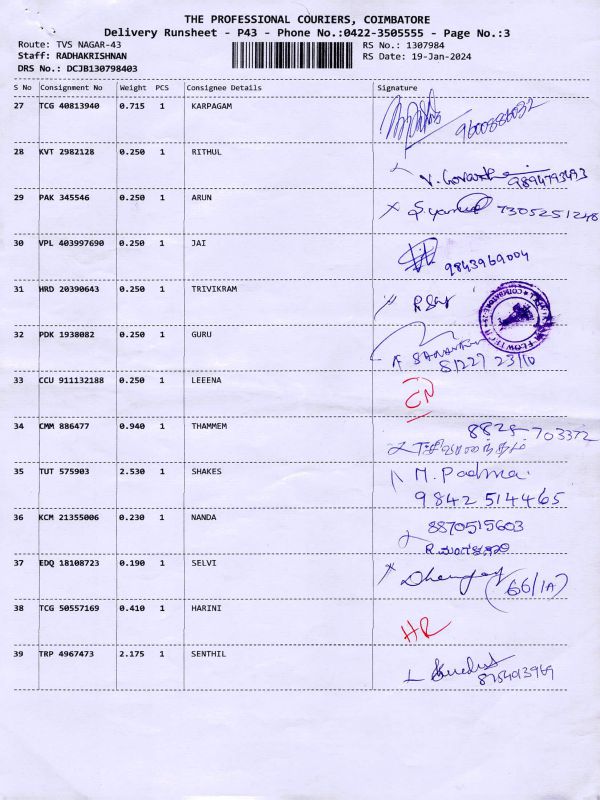 THE PROFESSIONAL COURIERS, COIMBATORE
Delivery Runsheet - P43 - Phone No.:0422-3505555 - Page No.:3
Route: TVS NAGAR-43 RS No.: 1307984
Staff: RADHAKRISHNAN RS Date: 19-Jan-2024
DRS No.: DCJB130798403
S No Consignment No Weight PCS Consignee Details Signature
27 TCG 40813940 0.715 1 KARPAGAM
9600886032
28 KVT 2982128 0.250 1 RITHUL
9894793493
29 PAK 345546 0.250 1 ARUN
7305251248
30 VPL 403997690 0.250 1 JAI
9843969004
31 HRD 20390643 0.250 1 TRIVIKRAM
32 PDK 1938082 0.250 1 GURU
33 CCU 911132188 0.250 1 LEEENA
CN
34 CMM 886477 0.940 1 THAMMEM
35 TUT 575903 2.530 1 SHAKES
M. Padma
9842514465
36 KCM 21355006 0.230 1 NANDA
8870515603
37 EDQ 18108723 0.190 1 SELVI
(66/1A)
38 TCG 50557169 0.410 1 HARINI
HR
39 TRP 4967473 2.175 1 SENTHIL